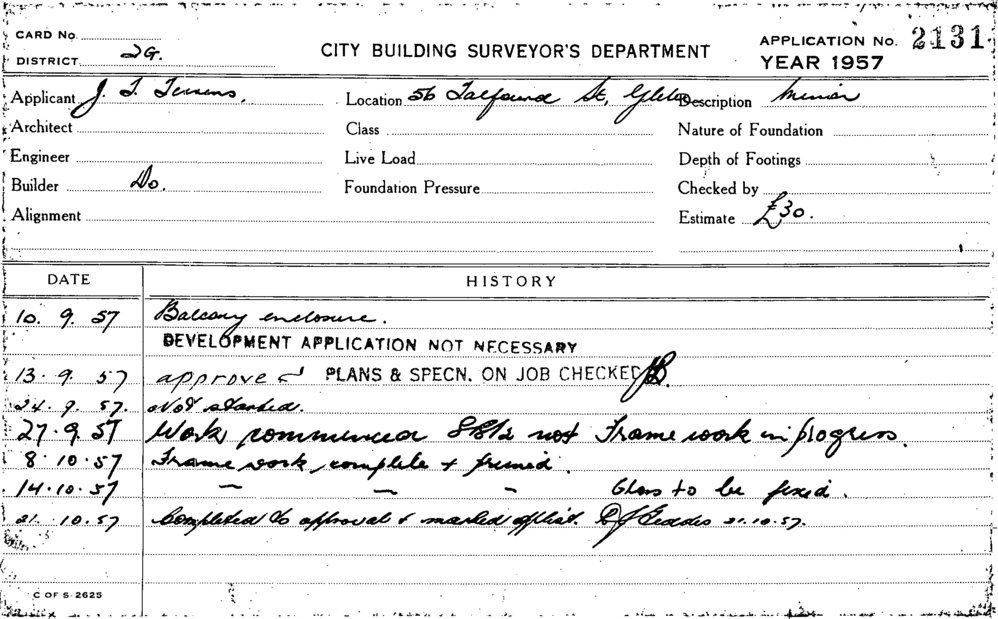 CARD No.
DISTRICT 2G.
CITY BUILDING SURVEYOR'S DEPARTMENT
APPLICATION No. 2131
YEAR 1957
Applicant J. T.
Location 56 Talfourd St, Glebe
Description Minor
Architect
Class
Nature of Foundation
Engineer
Live Load
Depth of Footings
Builder Do.
Foundation Pressure
Checked by
Alignment
Estimate £30.
DATE HISTORY
10. 9. 57 Balcony enclosure.
DEVELOPMENT APPLICATION NOT NECESSARY
13. 9. 57 approved PLANS & SPECN. ON JOB CHECKED
24. 9. 57. Not started.
27. 9. 57 Work commenced not Frame work in progress.
8. 10. 57 Frame work complete + primed.
14. 10. 57 — — — Glass to be fixed.
21. 10. 57 Completed to approval & marked off list. Geddes 21.10.57.
C OF S 2625